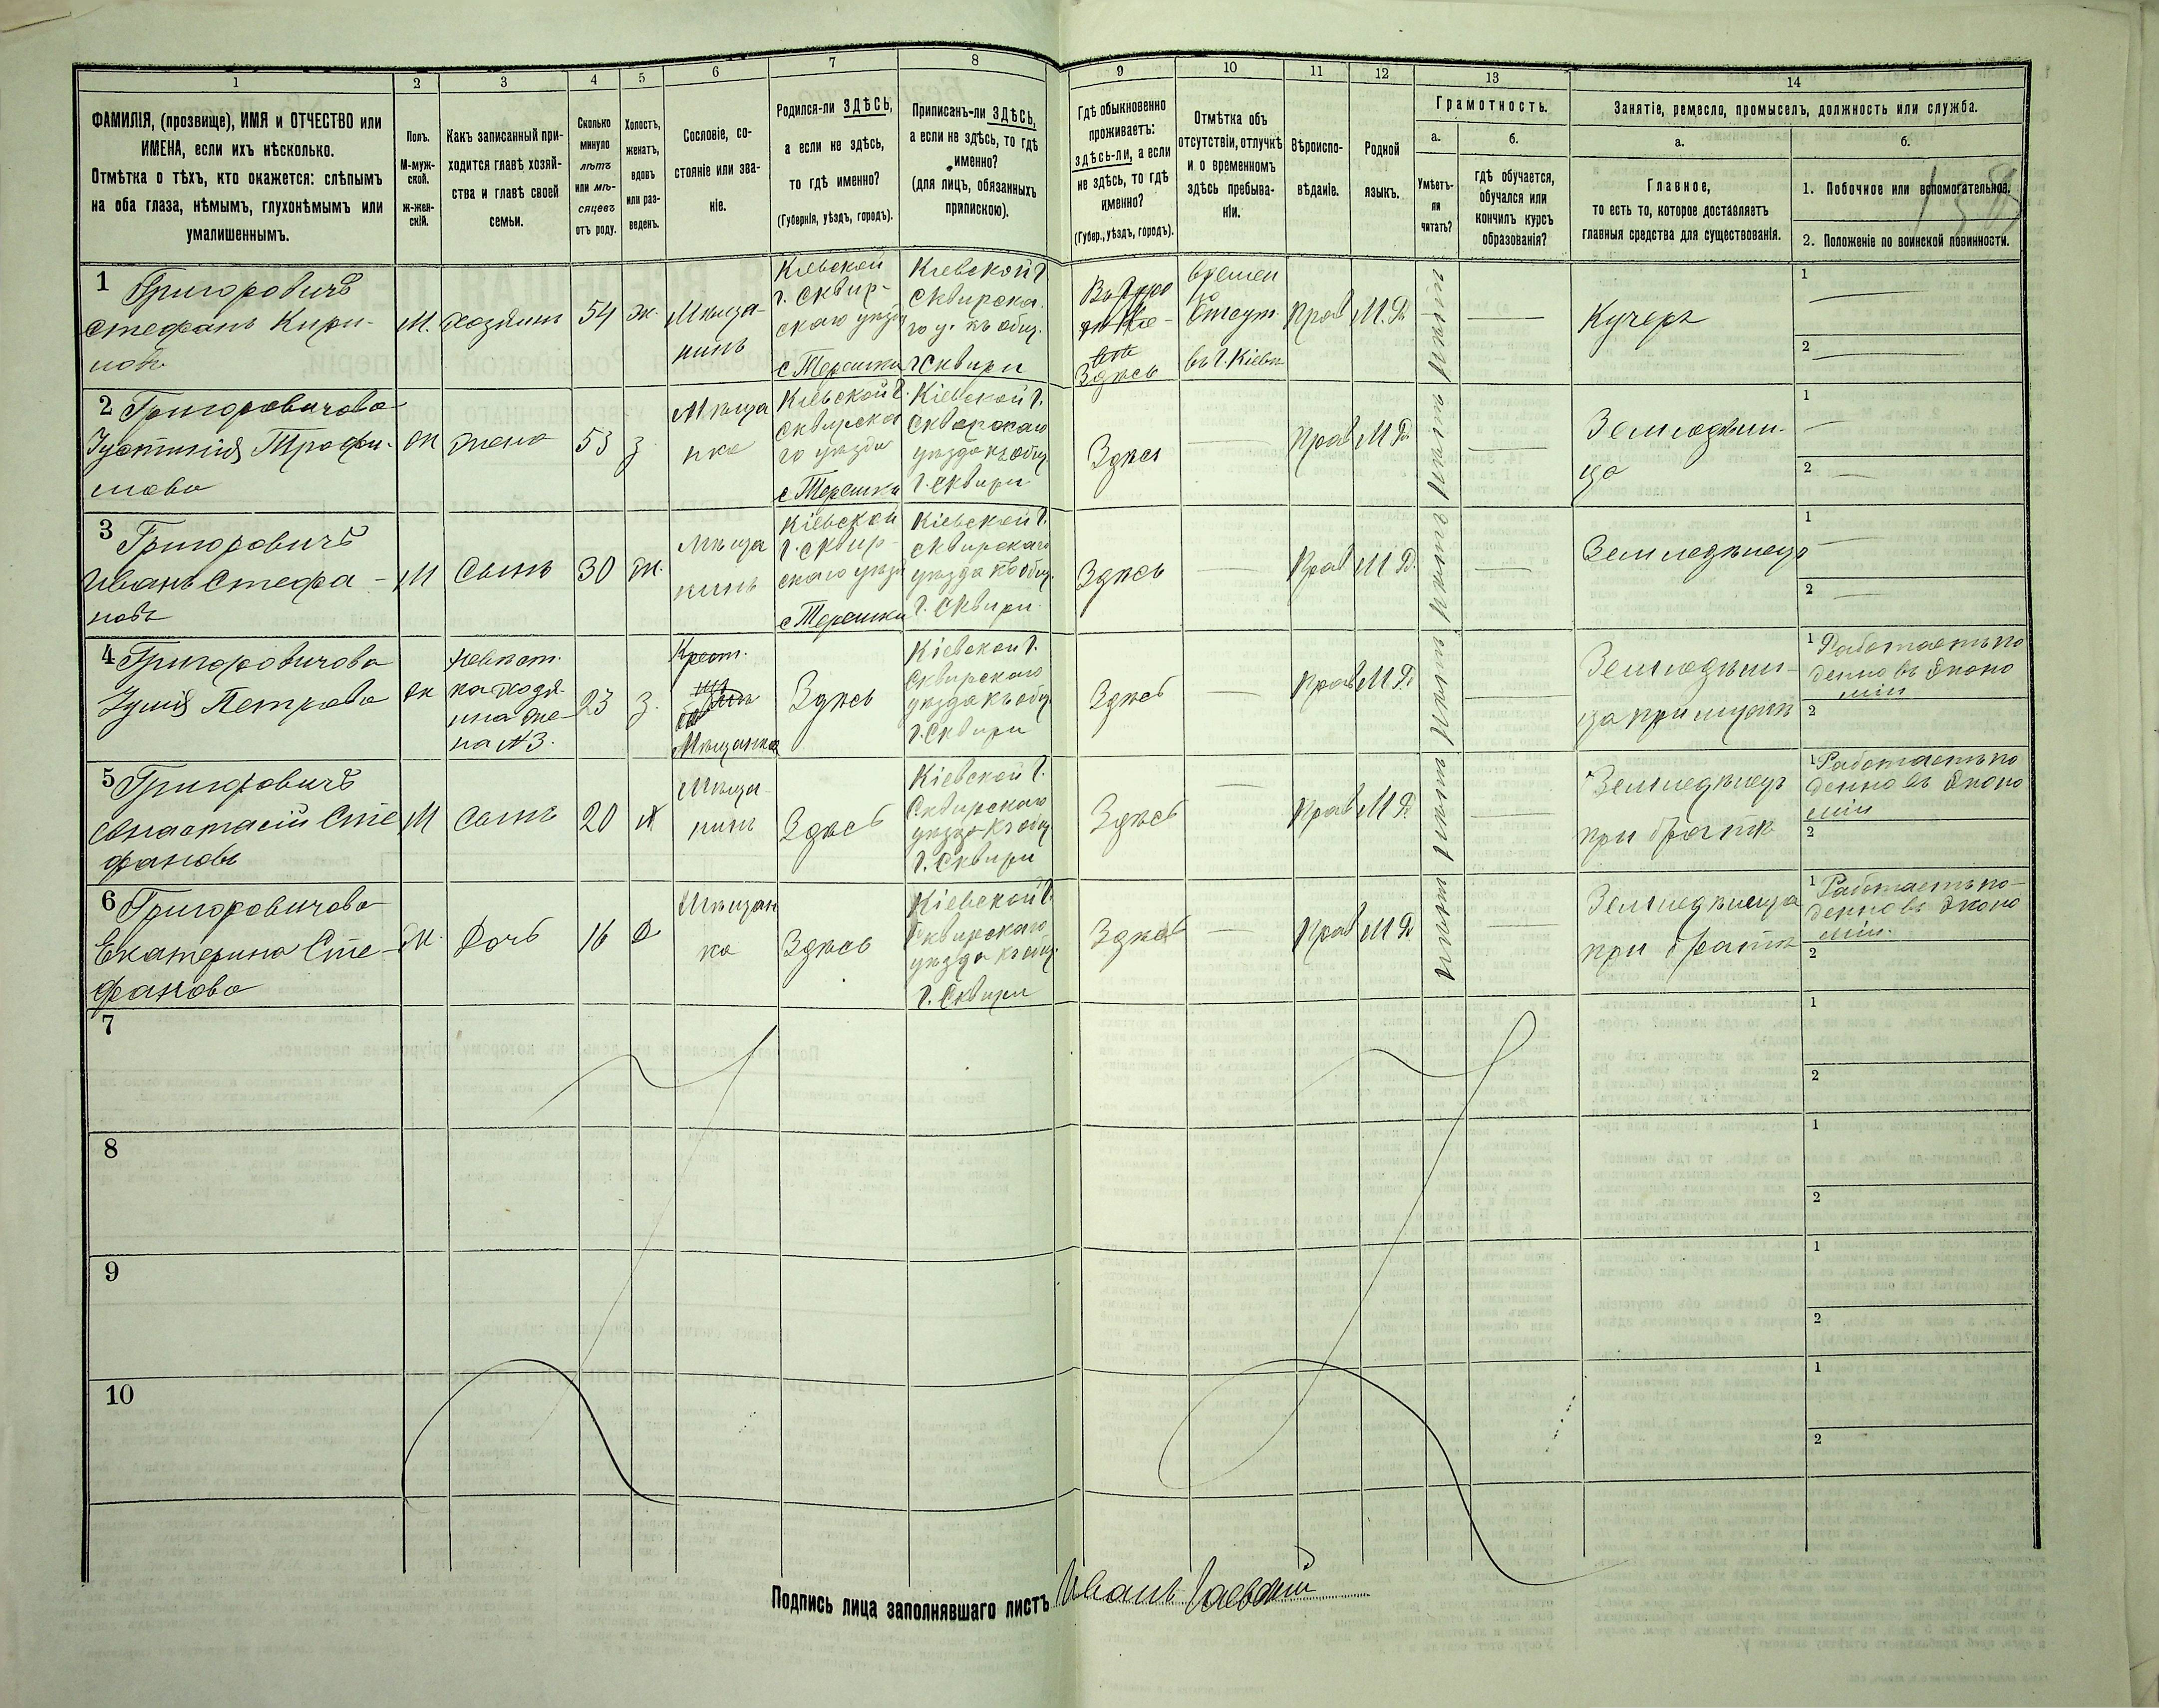 1 2 3 4 5 6 7 8 9 10 11 12 13 14
ФАМИЛІЯ, (прозвище), ИМЯ и ОТЧЕСТВО или
ИМЕНА, если ихъ нѣсколько.
Отмѣтка о тѣхъ, кто окажется: слѣпымъ
на оба глаза, нѣмымъ, глухонѣмымъ или
умалишеннымъ.
Полъ.
М-муж-
ской.
Ж-жен-
скій.
Какъ записанный при-
ходится главѣ хозяй-
ства и главѣ своей
семьи.
Сколько
минуло
лѣтъ
или мѣ-
сяцевъ
отъ роду.
Холостъ,
женатъ,
вдовъ
или раз-
веденъ.
Сословіе, со-
стояніе или зва-
ніе.
Родился-ли ЗДѢСЬ,
а если не здѣсь,
то гдѣ именно?
(Губернія, уѣздъ, городъ).
Приписанъ-ли ЗДѢСЬ,
а если не здѣсь, то гдѣ
именно?
(для лицъ, обязанныхъ
припискою).
Гдѣ обыкновенно
проживаетъ:
здѣсь-ли, а если
не здѣсь, то гдѣ
именно?
(Губер., уѣздъ, городъ).
Отмѣтка объ
отсутствіи, отлучкѣ
и о временномъ
здѣсь пребыва-
ніи.
Вѣроиспо-
вѣданіе.
Родной
языкъ.
Грамотность.
а.
Умѣетъ-
ли
читать?
б.
гдѣ обучается,
обучался или
кончилъ курсъ
образованія?
Занятіе, ремесло, промыселъ, должность или служба.
а.
Главное,
то есть то, которое доставляетъ
главныя средства для существованія.
б.
1. Побочное или вспомогательное.
2. Положеніе по воинской повинности.
1 Григоровичъ
Стефанъ Кири-
ловъ
М.
Хозяинъ
54
ж.
Мѣща-
нинъ
Кіевской
г. Сквир-
скаго уѣзд
с Терешки
Кіевской г
Сквирска
го у. къ общ.
г Сквири
Здѣсь
Времен
но
Отсут.
въ г. Кіевѣ
Прав
М.Р.
нѣтъ
Кучеръ
1
2
2 Григоровичова
Іустинія Трофи-
мова
ж
жена
53
з
Мѣща
нка
Кіевской г.
Сквирска
го уѣзда
с Терешки
Кіевской г.
Сквирскаго
уѣзда къ общ
г. Сквири
Здѣсь
Прав
М Р.
нѣтъ
Земледѣли-
ца
1
2
3 Григоровичъ
Иванъ Стефа-
новъ
М
Сынъ
30
ж.
Мѣща
нинъ
Кіевской
г. Сквир-
скаго уѣзд
с Терешки
Кіевской г.
Сквирскаго
уѣзда къ общ.
г. Сквири
Здѣсь
Прав
М Р.
нѣтъ
Земледѣлецъ
1
2
4 Григоровичова
Іулія Петрова
ж
невѣст.
ка хозя-
ина же-
на № 3.
23
з.
Крест.
Мѣщанка
Здѣсь
Кіевской г.
Сквирскаго
уѣзда къ общ
г. Сквири
Здѣсь
Прав
М Р
нѣтъ
Земледѣли-
ца при мужѣ
1 Работаетъ по
денно въ Эконо
міи
2
5 Григоровичъ
Анастасій Сте
фановъ
М
сынъ
20
х
Мѣща-
нинъ
Здѣсь
Кіевской г.
Сквирскаго
уѣзда къ общ
г. Сквири
Здѣсь
Прав
М Р.
нѣтъ
Земледѣлецъ
при братѣ
1 Работаетъ по
денно въ Эконо
міи
2
6 Григоровичова
Екатерина Сте-
фанова
Ж.
Дочь
16
д
Мѣщан
ка
Здѣсь
Кіевской г.
Сквирскаго
уѣзда къ общ.
г. Сквири
Здѣсь
Прав
М Р
нѣтъ
Земледѣлица
при братѣ
1 Работаетъ по-
денно въ Эконо
міи.
2
7
1
2
8
1
2
9
1
2
10
1
2
Подпись лица заполнявшаго листъ Иванъ